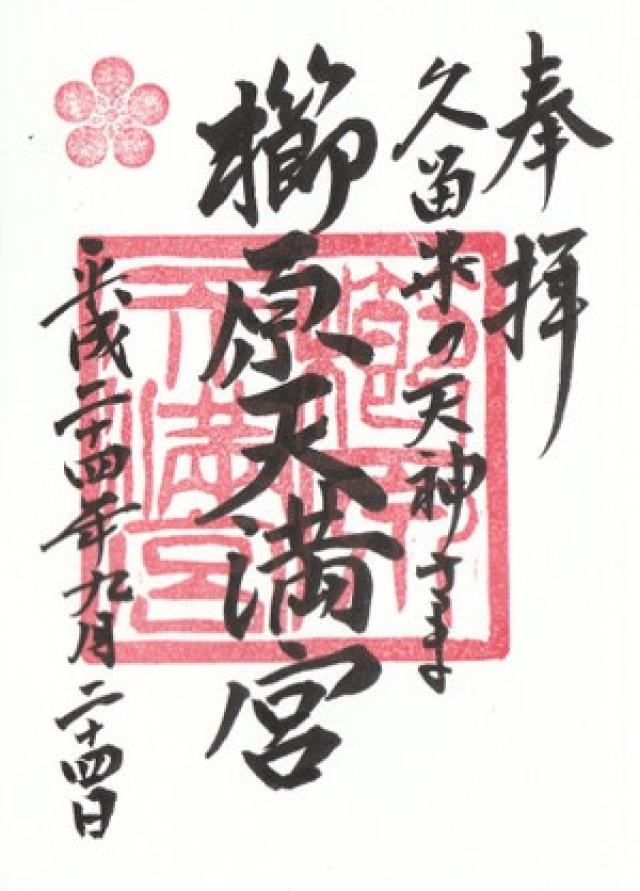 奉拝
久留米の天神さま
櫛原天満宮
平成二十四年九月二十四日